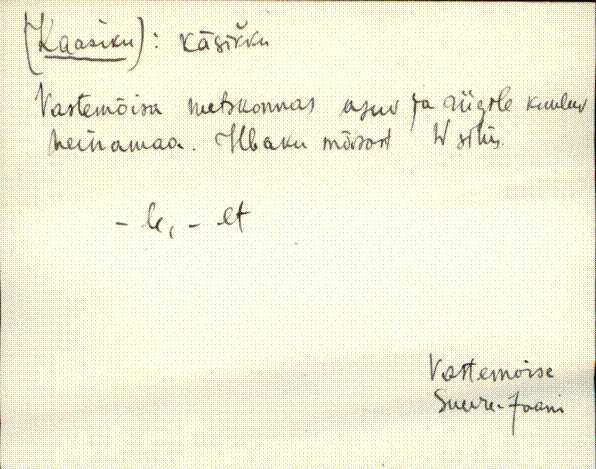 (Kaasiku): Käsikku
Vastemõisa metskonnas asuv ja riigile kuuluv
heinamaa. Ilbaku mõisast W sihis.
- le, - et
Vastemõisa
Suure-Jaani